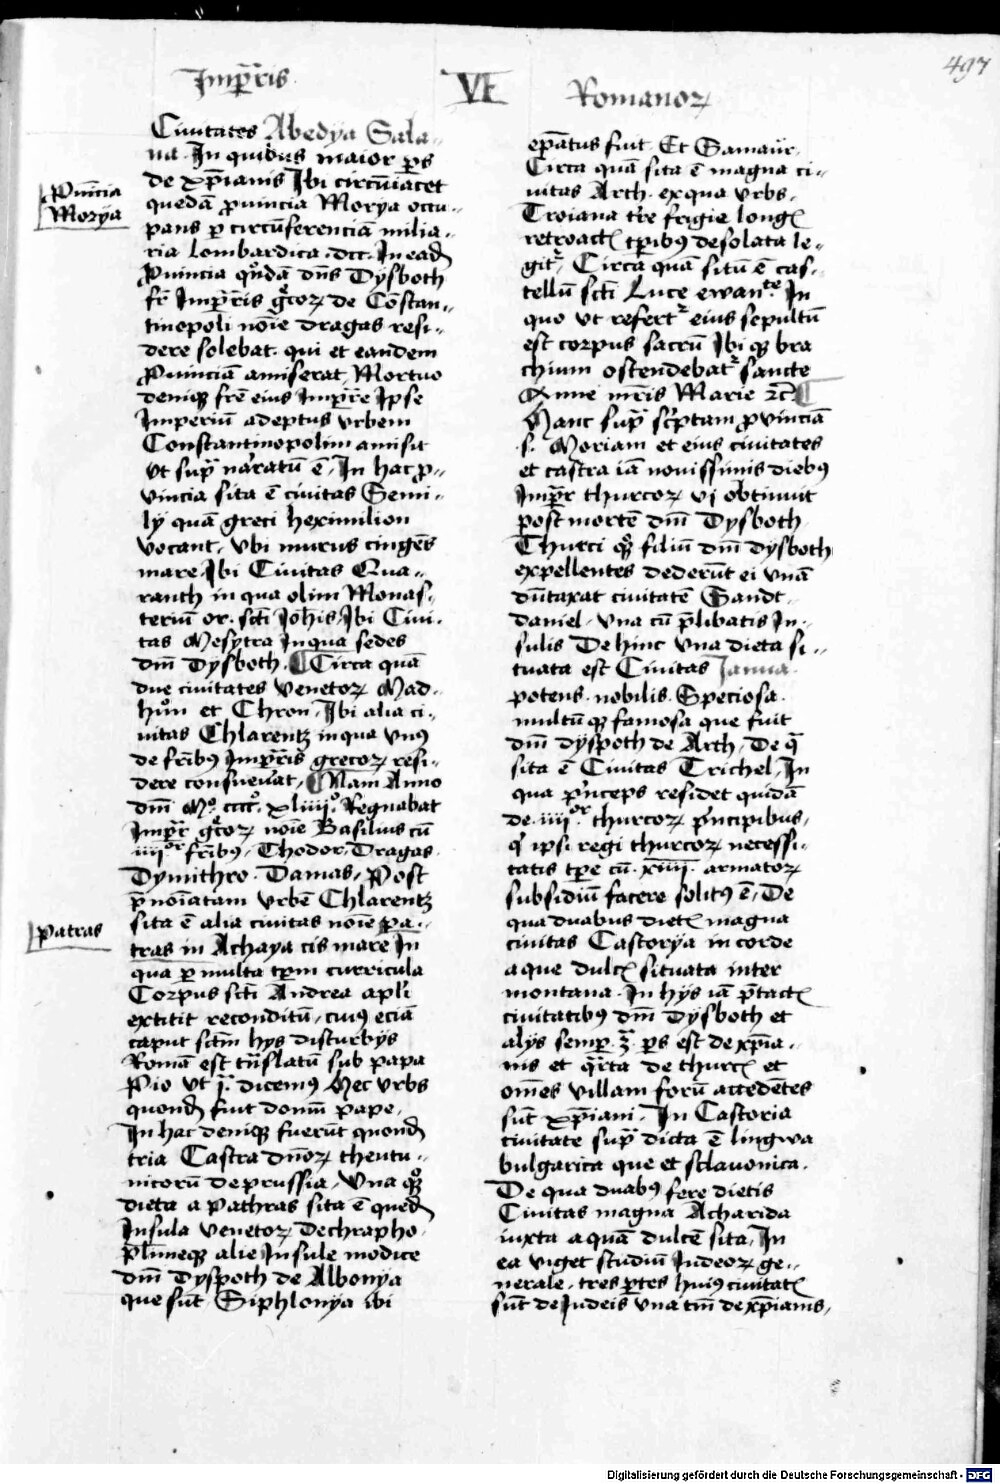 497
Imp̄ris VI Romanoꝝ
Ciuitates Abedÿa Sala-
na. In quibus maior p̄s
de xp̄ianis Ibi circūiacet
quedā ꝓuincia Morya occu-
pans ꝑ circūferenciā milia-
ria lombardica .dcc. In eadē
ꝓuincia qͦndā dn̄s Dysboth
fr̄ Imp̄ris gͨcoꝝ de Cōstan-
tinopoli noīe dragas resi-
dere solebat. qui et eandem
ꝓuinciā amiserat, Mortuo
deniqꝫ fr̄e eius Imp̄re Ipse
Imperiū adeptus vrbem
Constantinopolim amisit
vt sup̄ narratū ē. In hac ꝓ-
vincia sita ē ciuitas Semi-
lÿ quā greci heximilion
vocant. vbi murus cingēs
mare. Ibi Ciuitas Qua-
ranth in qua olim Monas-
teriū or. sc̄ti Joh̄is. Ibi Ciui-
tas Mesytra In qua sedes
dn̄i Dysboth. Circa quā
due ciuitates venetoꝝ Mad-
hͦn et Chron. Ibi alia ci-
uitas Chlarentz in qua vnꝰ
de fr̄ibꝰ Imp̄ris grecoꝝ resi-
dere consueuat. Nam Anno
dn̄i Mͦ. ccccͦ. xliiijͦ. Regnabat
Imp̄r gͨcoꝝ noīe Basilius cū
iiijͦʳ fr̄ibꝰ. Thodor. Dragas.
Dymithro. Damas. Post
p̄noīatam vrbē Chlarentz
sita ē alia ciuitas noīe pa-
tras in Achaya cis mare In
qua ꝑ multa tꝑm curricula
Corpus sc̄ti Andree apl̄i
extitit reconditū, cuiꝰ eciā
caput sitm̄ hys disturbÿs
Romā est tn̄slatū sub papa
Pio vt jͣ. dicemꝰ Hec vrbs
quondā fuit domū pape.
In hac deniqꝫ fuerūt quondā
tria Castra dn̄oꝝ theutu-
nicorū de prussia. Vna qͦꝫ
dieta a pathras sita ē quedā
Insula venetoꝝ Dechrapho.
pl̄imeqꝫ alie Insule modice
dn̄i Dyspoth de Albonÿa
que sūt Siphlonÿa ibi
ꝓuīcia
Morÿa
patras
ep̄atus fuit. Et Samaur.
Circa quā sita ē magna ci-
uitas Arth. ex qua vrbs.
Troiana tr̄e frigie longꝭ
retroactꝭ tꝑibꝰ desolata le-
gitʳ. Circa quā sitū ē cas-
tellū sc̄ti Luce ewan̄te. In
quo vt refertʳ eius sepultū
est corpus sacrū Ibi qꝫ bra
chium ostendebatʳ sancte
Anne mr̄is Marie ⁊c̄
Hanc sup̄ sc̄ptam ꝓvinciā
.s. Moriam et eius ciuitates
et castra iā nouissimis diebꝰ
Imp̄r thurcoꝝ vi obtinuit
post mortē dn̄i Dysboth.
Thurci qͦꝫ filiū dn̄i dÿsboth
expellentes dederūt ei vnā
dūtaxat ciuitatē Sandt.
daniel. vna cū p̄libatis In-
sulis De hinc vna dieta si-
tuata est Ciuitas Janua
potens. nobilis. Speciosa.
multūqꝫ famosa que fuit
dn̄i dÿspoth de Arth. De qͣ
sita ē Ciuitas Trichel. In
qua pͥnceps residet quidā
de .iiijͦʳ. thurcoꝝ pͥncipibus.
qͥ ipsi regi thurcoꝝ necessi-
tatis tꝑe cū .xiiij. armatoꝝ
subsidiū facere solitꝰ ē. De
qua duabus dietꝭ magna
ciuitas Castorÿa in corde
aque dulcꝭ situata inter
montana. In hÿs iā p̄tactꝭ
ciuitatibꝰ dn̄i Dÿsboth et
alÿs semꝑ .ʒͣ. p̄s est de xp̄ia-
nis et qͣrta de thurcꝭ et
om̄es villam forū accedētes
sūt xp̄iani. In Castoria
ciuitate sup̄ dicta ē lingwa
bulgarica que et sclauonica.
De qua duabꝰ fere dietis
Ciuitas magna Acharida
iuxta aquā dulcē sita, In
ea viget studiū Iudeoꝝ ge-
nerale. tres p̄tes huiꝰ ciuitatꝭ
sūt de Judeis vna tm̄ de xp̄ianis,
Digitalisierung gefördert durch die Deutsche Forschungsgemeinschaft - DFG